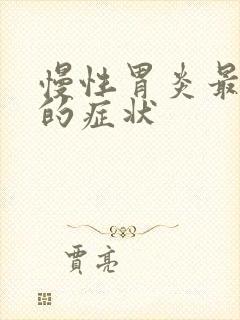 慢性胃炎最
的症状
贾亮